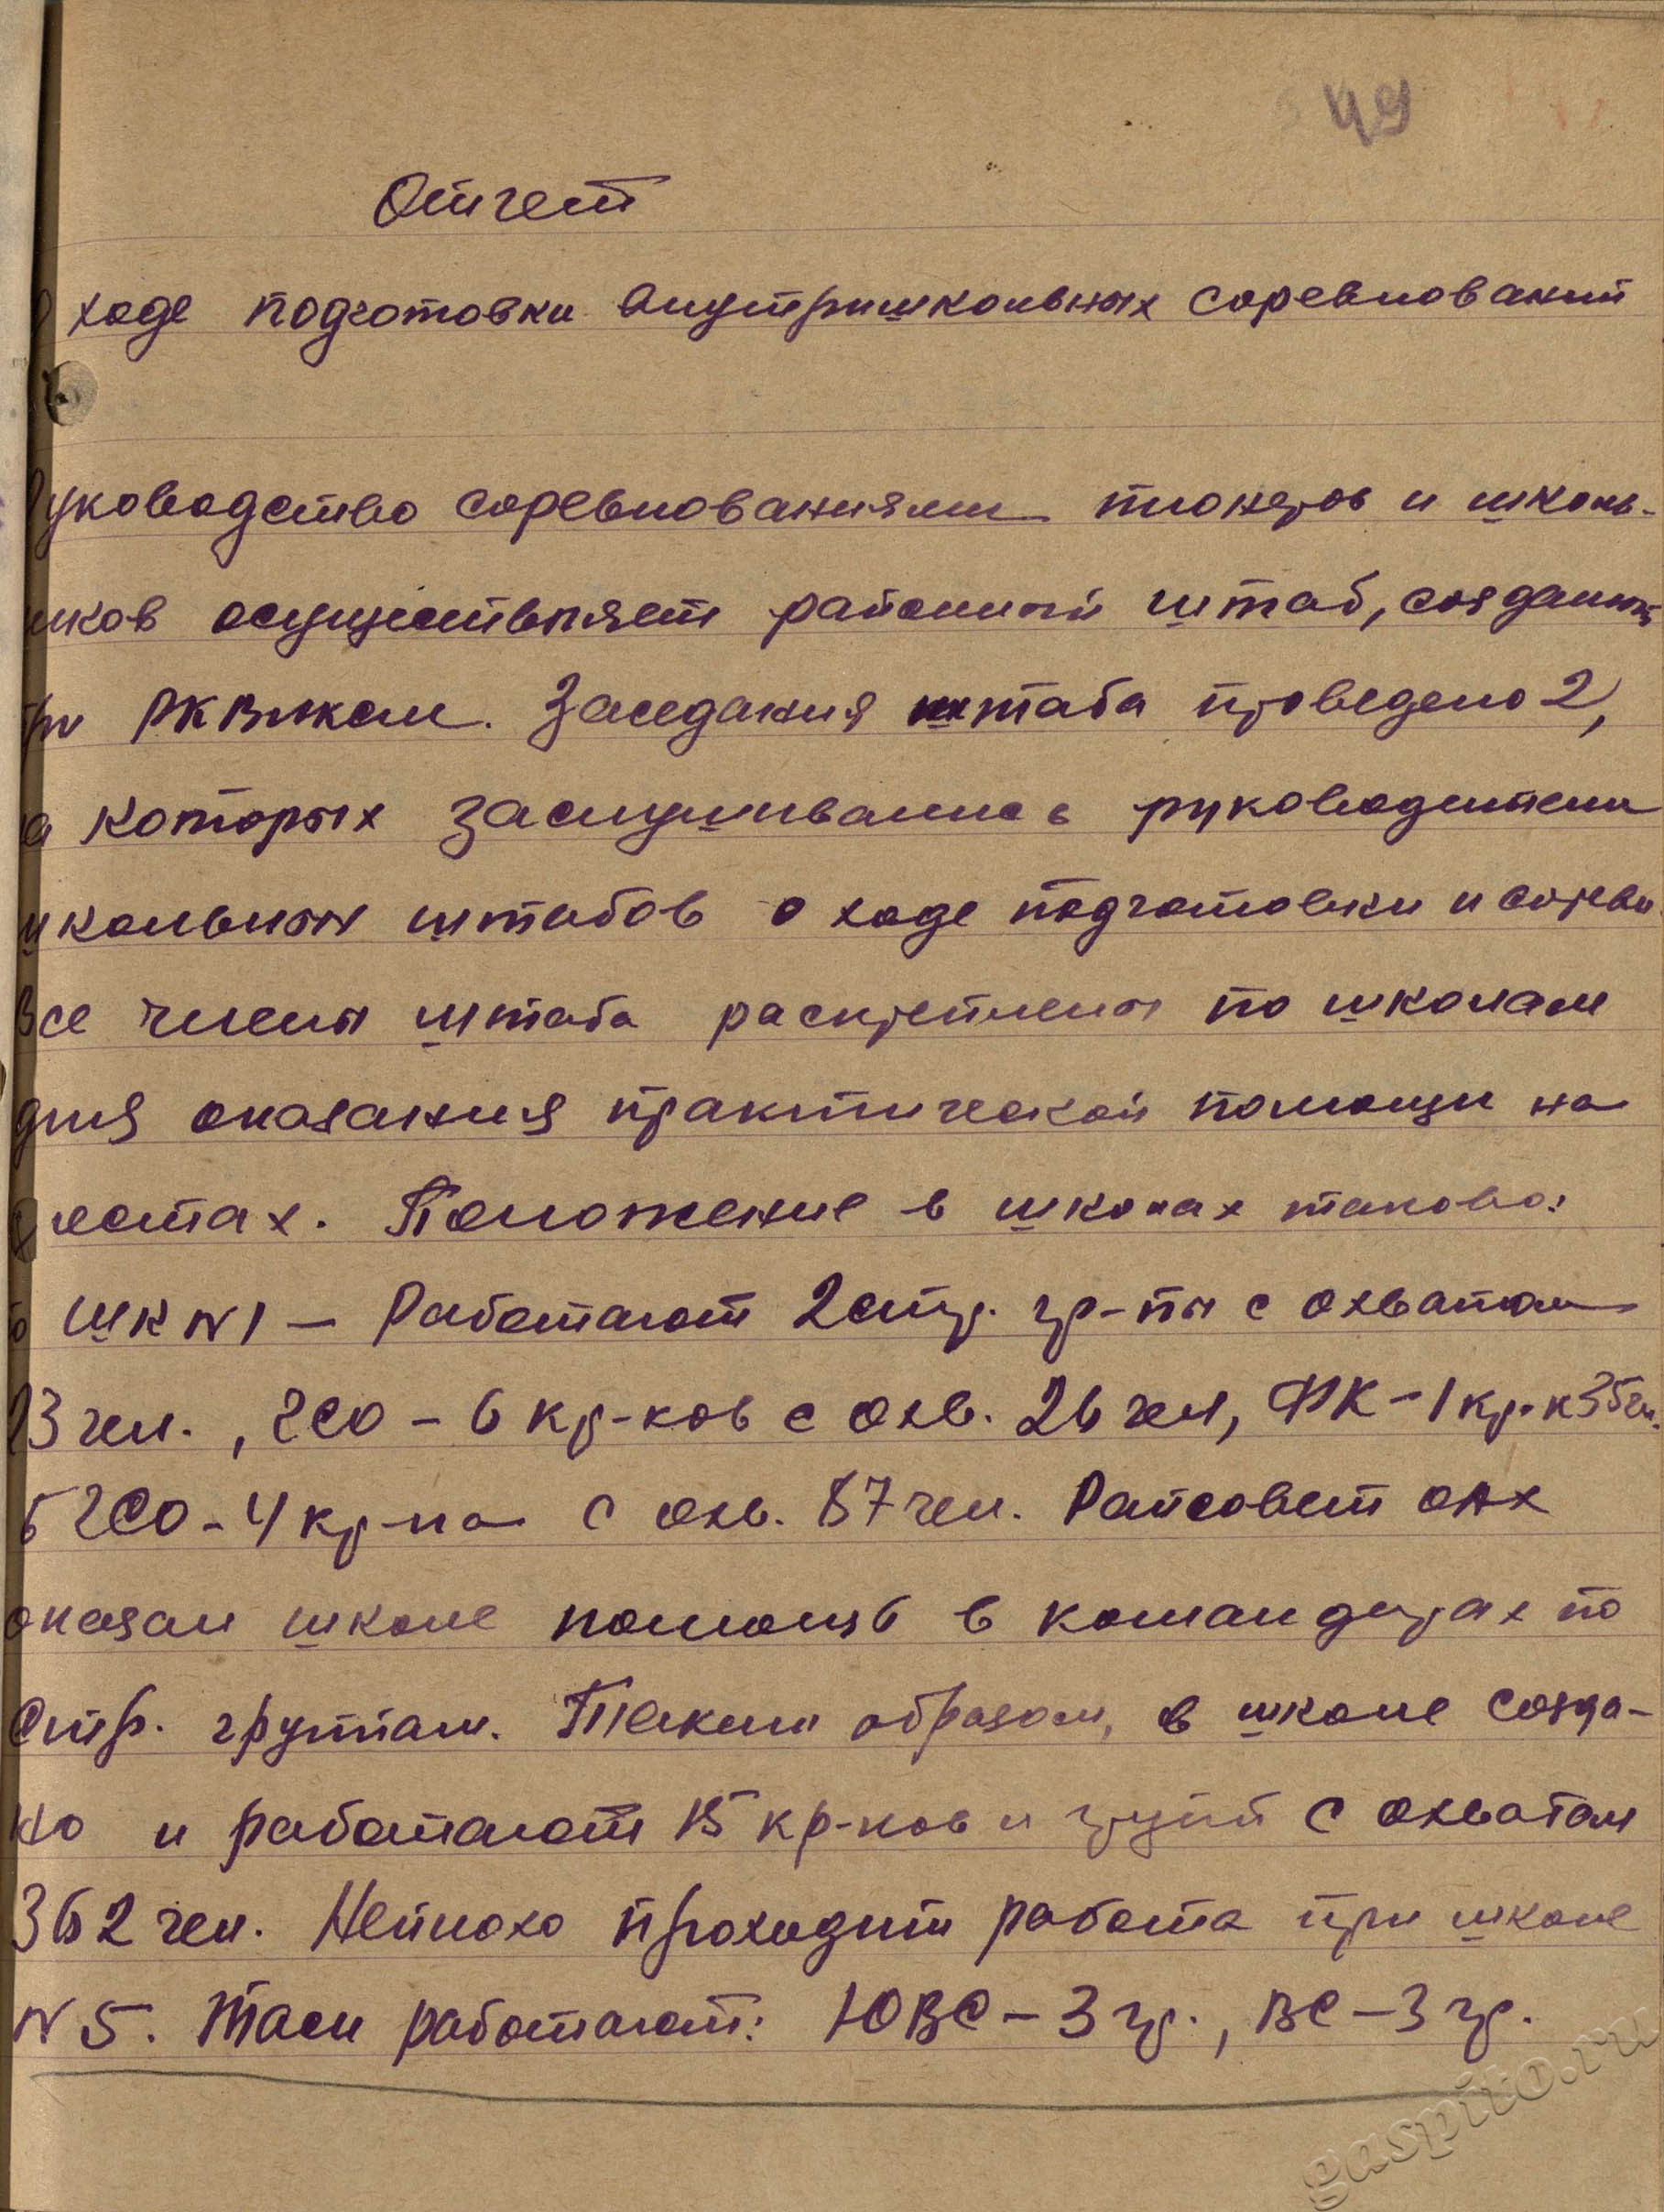 49
Отчет
О ходе подготовки внутришкольных соревнований
Руководство соревнованиями пионеров и школь-
ников осуществляет районный штаб, созданный
при РКВЛКСМ. Заседания штаба проведено 2,
на которых заслушивались руководители
школьных штабов о ходе подготовки и соревн.
Все члены штаба раскреплены по школам
для оказания практической помощи на
местах. Положение в школах таково:
ШК N 1 – Работают 2 стр. гр-пы с охватом
23 чел., ГСО – 6 кр-ков с охв. 26 чел, ФК – 1 кр-к 35 чел.
БГСО – 4 кр-ка с охв. 87 чел. Райсовет ОАХ
оказал школе помощь в командирах по
стр. группам. Таким образом, в школе созда-
но и работают 15 кр-ков и групп с охватом
362 чел. Неплохо проходит работа при школе
N 5. Там работают: ЮВС – 3 гр., ВС – 3 гр.
gaspito.ru